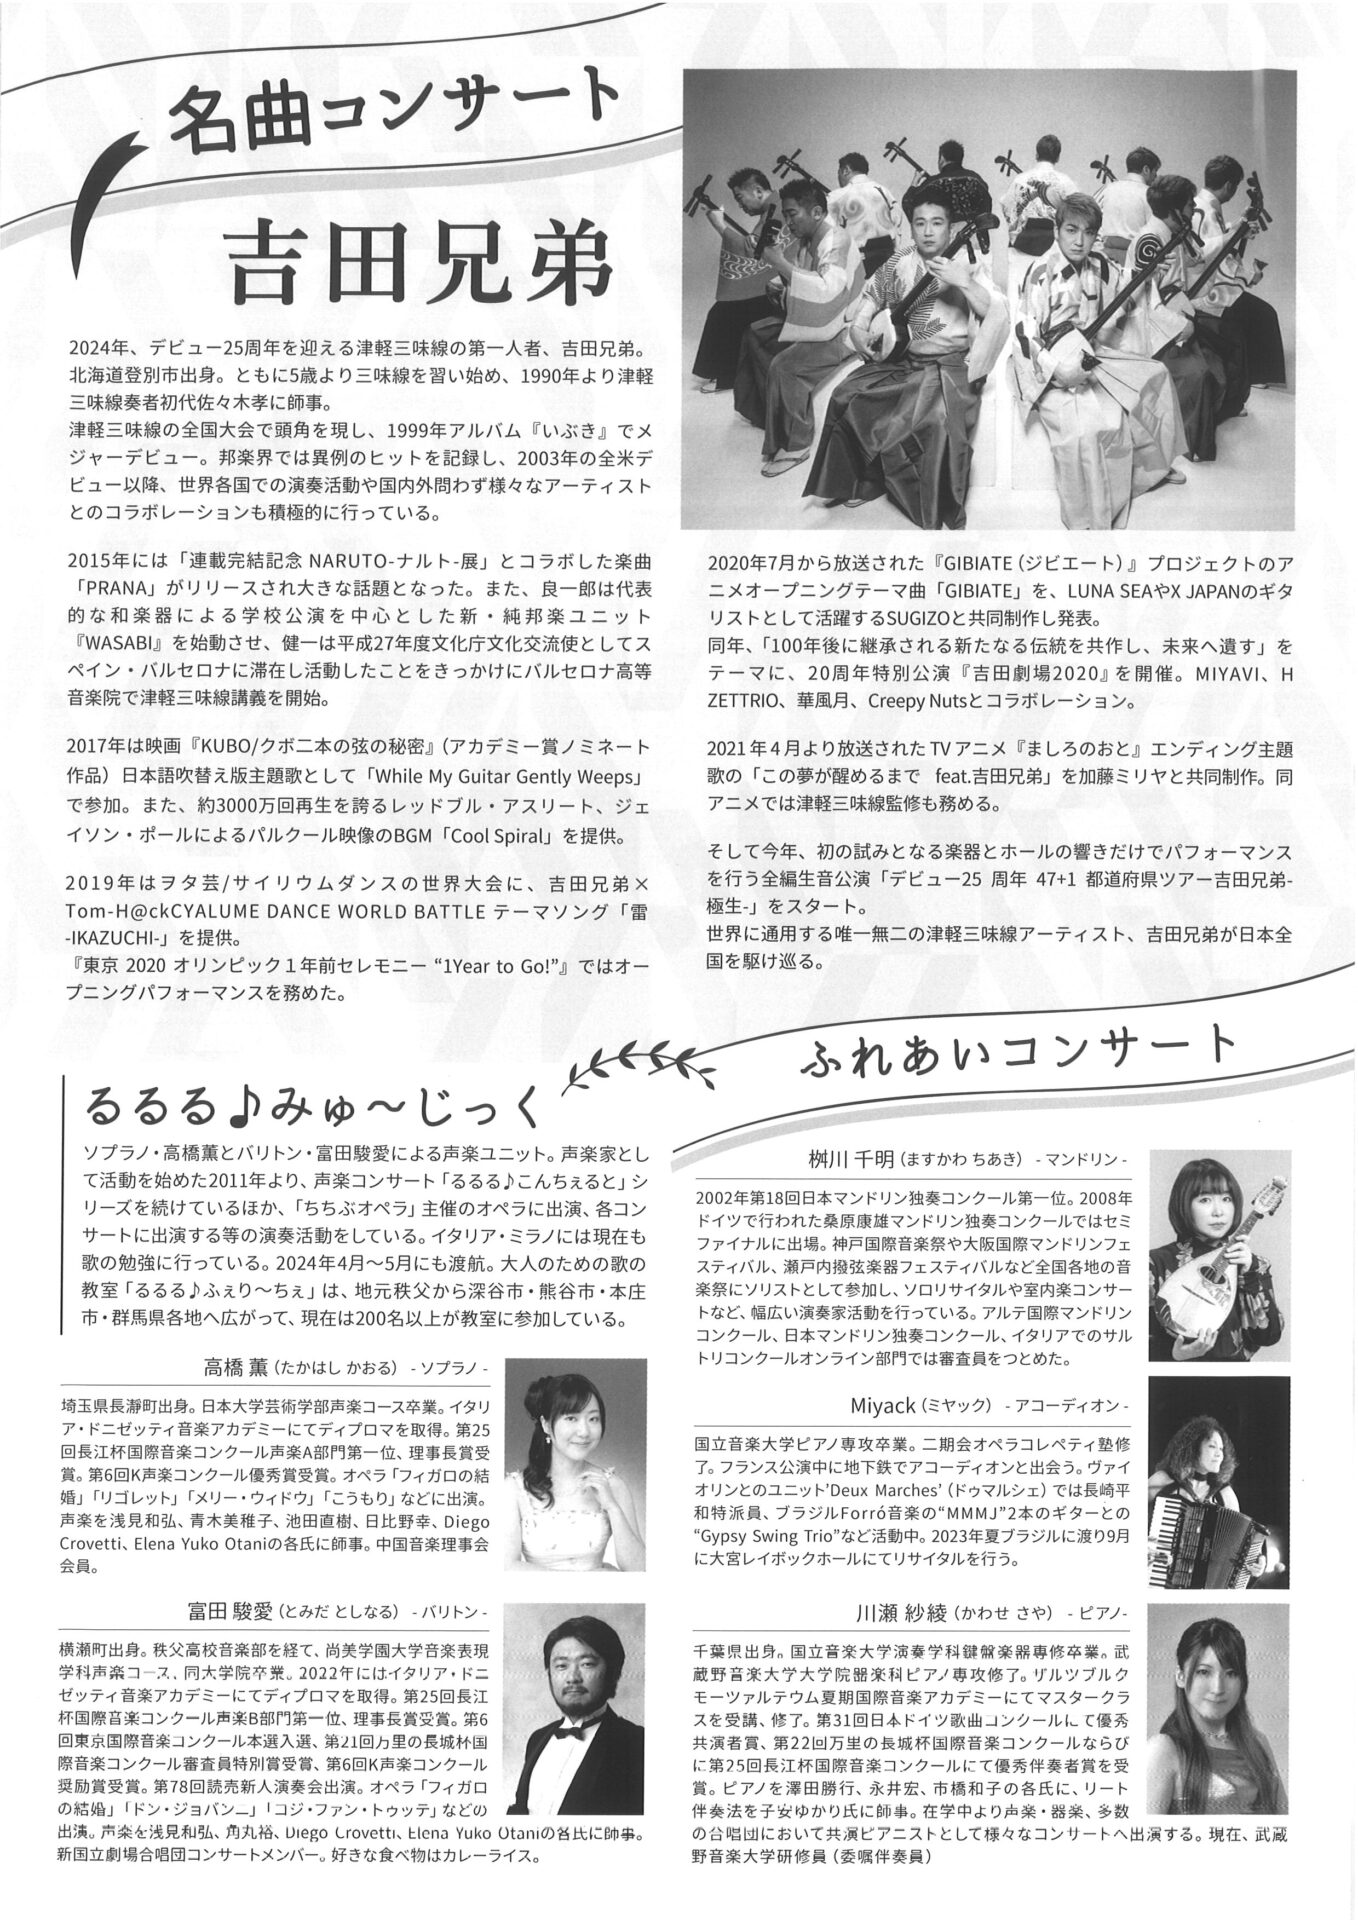 名曲コンサート
吉田兄弟
2024年、デビュー25周年を迎える津軽三味線の第一人者、吉田兄弟。
北海道登別市出身。ともに5歳より三味線を習い始め、1990年より津軽
三味線奏者初代佐々木孝に師事。
津軽三味線の全国大会で頭角を現し、1999年アルバム『いぶき』でメ
ジャーデビュー。邦楽界では異例のヒットを記録し、2003年の全米デ
ビュー以降、世界各国での演奏活動や国内外問わず様々なアーティスト
とのコラボレーションも積極的に行っている。
2015年には「連載完結記念 NARUTO-ナルト-展」とコラボした楽曲
「PRANA」がリリースされ大きな話題となった。また、良一郎は代表
的な和楽器による学校公演を中心とした新・純邦楽ユニット
『WASABI』を始動させ、健一は平成27年度文化庁文化交流使としてス
ペイン・バルセロナに滞在し活動したことをきっかけにバルセロナ高等
音楽院で津軽三味線講義を開始。
2017年は映画『KUBO/クボ二本の弦の秘密』（アカデミー賞ノミネート
作品）日本語吹替え版主題歌として「While My Guitar Gently Weeps」
で参加。また、約3000万回再生を誇るレッドブル・アスリート、ジェ
イソン・ポールによるパルクール映像のBGM「Cool Spiral」を提供。
2019年はヲタ芸/サイリウムダンスの世界大会に、吉田兄弟×
Tom-H@ckCYALUME DANCE WORLD BATTLE テーマソング「雷
-IKAZUCHI-」を提供。
『東京 2020 オリンピック１年前セレモニー “1Year to Go!”』ではオー
プニングパフォーマンスを務めた。
2020年7月から放送された『GIBIATE（ジビエート）』プロジェクトのア
ニメオープニングテーマ曲「GIBIATE」を、LUNA SEAやX JAPANのギタ
リストとして活躍するSUGIZOと共同制作し発表。
同年、「100年後に継承される新たなる伝統を共作し、未来へ遺す」を
テーマに、20周年特別公演『吉田劇場2020』を開催。MIYAVI、H
ZETTRIO、華風月、Creepy Nutsとコラボレーション。
2021年４月より放送されたTVアニメ『ましろのおと』エンディング主題
歌の「この夢が醒めるまで feat.吉田兄弟」を加藤ミリヤと共同制作。同
アニメでは津軽三味線監修も務める。
そして今年、初の試みとなる楽器とホールの響きだけでパフォーマンス
を行う全編生音公演「デビュー25 周年 47+1 都道府県ツアー吉田兄弟-
極生-」をスタート。
世界に通用する唯一無二の津軽三味線アーティスト、吉田兄弟が日本全
国を駆け巡る。
ふれあいコンサート
るるる♪みゅ～じっく
ソプラノ・高橋薫とバリトン・富田駿愛による声楽ユニット。声楽家とし
て活動を始めた2011年より、声楽コンサート「るるる♪こんちぇると」シ
リーズを続けているほか、「ちちぶオペラ」主催のオペラに出演、各コン
サートに出演する等の演奏活動をしている。イタリア・ミラノには現在も
歌の勉強に行っている。2024年4月～5月にも渡航。大人のための歌の
教室「るるる♪ふぇり～ちぇ」は、地元秩父から深谷市・熊谷市・本庄
市・群馬県各地へ広がって、現在は200名以上が教室に参加している。
高橋 薫（たかはし かおる） - ソプラノ -
埼玉県長瀞町出身。日本大学芸術学部声楽コース卒業。イタリ
ア・ドニゼッティ音楽アカデミーにてディプロマを取得。第25
回長江杯国際音楽コンクール声楽A部門第一位、理事長賞受
賞。第6回K声楽コンクール優秀賞受賞。オペラ「フィガロの結
婚」「リゴレット」「メリー・ウィドウ」「こうもり」などに出演。
声楽を浅見和弘、青木美稚子、池田直樹、日比野幸、Diego
Crovetti、Elena Yuko Otaniの各氏に師事。中国音楽理事会
会員。
富田 駿愛（とみだ としなる） - バリトン -
横瀬町出身。秩父高校音楽部を経て、尚美学園大学音楽表現
学科声楽コース、同大学院卒業。2022年にはイタリア・ドニ
ゼッティ音楽アカデミーにてディプロマを取得。第25回長江
杯国際音楽コンクール声楽B部門第一位、理事長賞受賞。第6
回東京国際音楽コンクール本選入選、第21回万里の長城杯国
際音楽コンクール審査員特別賞受賞、第6回K声楽コンクール
奨励賞受賞。第78回読売新人演奏会出演。オペラ「フィガロ
の結婚」「ドン・ジョバンニ」「コジ・ファン・トゥッテ」などの
出演。声楽を浅見和弘、角丸裕、Diego Crovetti、Elena Yuko Otaniの各氏に師事。
新国立劇場合唱団コンサートメンバー。好きな食べ物はカレーライス。
桝川 千明（ますかわ ちあき） - マンドリン -
2002年第18回日本マンドリン独奏コンクール第一位。2008年
ドイツで行われた桑原康雄マンドリン独奏コンクールではセミ
ファイナルに出場。神戸国際音楽祭や大阪国際マンドリンフェ
スティバル、瀬戸内撥弦楽器フェスティバルなど全国各地の音
楽祭にソリストとして参加し、ソロリサイタルや室内楽コンサー
トなど、幅広い演奏家活動を行っている。アルテ国際マンドリン
コンクール、日本マンドリン独奏コンクール、イタリアでのサル
トリコンクールオンライン部門では審査員をつとめた。
Miyack（ミヤック） - アコーディオン -
国立音楽大学ピアノ専攻卒業。二期会オペラコレペティ塾修
了。フランス公演中に地下鉄でアコーディオンと出会う。ヴァイ
オリンとのユニット’Deux Marches’（ドゥマルシェ）では長崎平
和特派員、ブラジルForró音楽の“MMMJ”2本のギターとの
“Gypsy Swing Trio”など活動中。2023年夏ブラジルに渡り9月
に大宮レイボックホールにてリサイタルを行う。
川瀬 紗綾（かわせ さや） - ピアノ-
千葉県出身。国立音楽大学演奏学科鍵盤楽器専修卒業。武
蔵野音楽大学大学院器楽科ピアノ専攻修了。ザルツブルク
モーツァルテウム夏期国際音楽アカデミーにてマスタークラ
スを受講、修了。第31回日本ドイツ歌曲コンクールにて優秀
共演者賞、第22回万里の長城杯国際音楽コンクールならび
に第25回長江杯国際音楽コンクールにて優秀伴奏者賞を受
賞。ピアノを澤田勝行、永井宏、市橋和子の各氏に、リート
伴奏法を子安ゆかり氏に師事。在学中より声楽・器楽、多数
の合唱団において共演ピアニストとして様々なコンサートへ出演する。現在、武蔵
野音楽大学研修員（委嘱伴奏員）